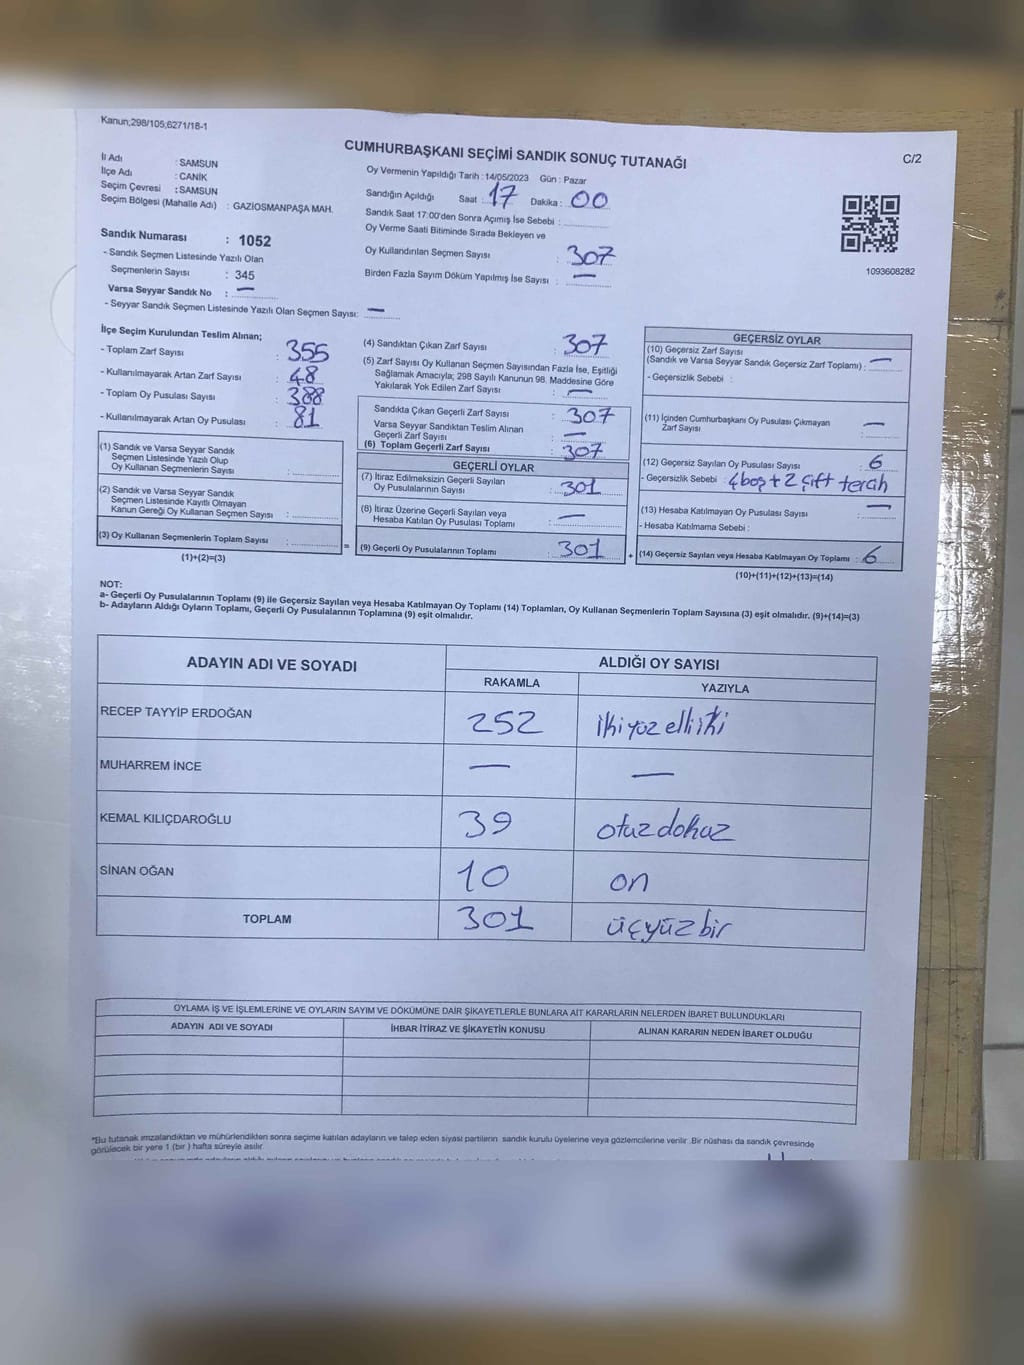 Kanun;298/105;6271/18-1
CUMHURBAŞKANI SEÇİMİ SANDIK SONUÇ TUTANAĞI
C/2
İl Adı : SAMSUN
İlçe Adı : CANİK
Seçim Çevresi : SAMSUN
Seçim Bölgesi (Mahalle Adı) : GAZİOSMANPAŞA MAH.
Sandık Numarası : 1052
- Sandık Seçmen Listesinde Yazılı Olan
Seçmenlerin Sayısı : 345
Varsa Seyyar Sandık No : —
- Seyyar Sandık Seçmen Listesinde Yazılı Olan Seçmen Sayısı: —
Oy Vermenin Yapıldığı Tarih : 14/05/2023 Gün : Pazar
Sandığın Açıldığı Saat : 17 Dakika : 00
Sandık Saat 17:00'den Sonra Açımış İse Sebebi :
Oy Verme Saati Bitiminde Sırada Bekleyen ve
Oy Kullandırılan Seçmen Sayısı : 307
Birden Fazla Sayım Döküm Yapılmış İse Sayısı : —
1093608282
İlçe Seçim Kurulundan Teslim Alınan;
- Toplam Zarf Sayısı : 355
- Kullanılmayarak Artan Zarf Sayısı : 48
- Toplam Oy Pusulası Sayısı : 388
- Kullanılmayarak Artan Oy Pusulası : 81
(1) Sandık ve Varsa Seyyar Sandık
Seçmen Listesinde Yazılı Olup
Oy Kullanan Seçmenlerin Sayısı :
(2) Sandık ve Varsa Seyyar Sandık
Seçmen Listesinde Kayıtlı Olmayan
Kanun Gereği Oy Kullanan Seçmen Sayısı :
(3) Oy Kullanan Seçmenlerin Toplam Sayısı : =
(1)+(2)=(3)
(4) Sandıktan Çıkan Zarf Sayısı : 307
(5) Zarf Sayısı Oy Kullanan Seçmen Sayısından Fazla İse, Eşitliği
Sağlamak Amacıyla; 298 Sayılı Kanunun 98. Maddesine Göre
Yakılarak Yok Edilen Zarf Sayısı : —
Sandıkta Çıkan Geçerli Zarf Sayısı : 307
Varsa Seyyar Sandıktan Teslim Alınan
Geçerli Zarf Sayısı : —
(6) Toplam Geçerli Zarf Sayısı : 307
GEÇERLİ OYLAR
(7) İtiraz Edilmeksizin Geçerli Sayılan
Oy Pusulalarının Sayısı : 301
(8) İtiraz Üzerine Geçerli Sayılan veya
Hesaba Katılan Oy Pusulası Toplamı : —
(9) Geçerli Oy Pusulalarının Toplamı : 301 +
GEÇERSİZ OYLAR
(10) Geçersiz Zarf Sayısı
(Sandık ve Varsa Seyyar Sandık Geçersiz Zarf Toplamı) : —
- Geçersizlik Sebebi :
(11) İçinden Cumhurbaşkanı Oy Pusulası Çıkmayan
Zarf Sayısı : —
(12) Geçersiz Sayılan Oy Pusulası Sayısı : 6
- Geçersizlik Sebebi : 4 boş + 2 çift tercih
(13) Hesaba Katılmayan Oy Pusulası Sayısı : —
- Hesaba Katılmama Sebebi :
(14) Geçersiz Sayılan veya Hesaba Katılmayan Oy Toplamı : 6
(10)+(11)+(12)+(13)=(14)
NOT:
a- Geçerli Oy Pusulalarının Toplamı (9) ile Geçersiz Sayılan veya Hesaba Katılmayan Oy Toplamı (14) Toplamları, Oy Kullanan Seçmenlerin Toplam Sayısına (3) eşit olmalıdır. (9)+(14)=(3)
b- Adayların Aldığı Oyların Toplamı, Geçerli Oy Pusulalarının Toplamına (9) eşit olmalıdır.
ADAYIN ADI VE SOYADI ALDIĞI OY SAYISI
RAKAMLA YAZIYLA
RECEP TAYYİP ERDOĞAN 252 ikiyüzelliiki
MUHARREM İNCE — —
KEMAL KILIÇDAROĞLU 39 otuzdokuz
SİNAN OĞAN 10 on
TOPLAM 301 üçyüzbir
OYLAMA İŞ VE İŞLEMLERİNE VE OYLARIN SAYIM VE DÖKÜMÜNE DAİR ŞİKAYETLERLE BUNLARA AİT KARARLARIN NELERDEN İBARET BULUNDUKLARI
ADAYIN ADI VE SOYADI İHBAR İTİRAZ VE ŞİKAYETİN KONUSU ALINAN KARARIN NEDEN İBARET OLDUĞU
*Bu tutanak imzalandıktan ve mühürlendikten sonra seçime katılan adayların ve talep eden siyasi partilerin sandık kurulu üyelerine veya gözlemcilerine verilir. Bir nüshası da sandık çevresinde
görülecek bir yere 1 (bir) hafta süreyle asılır.